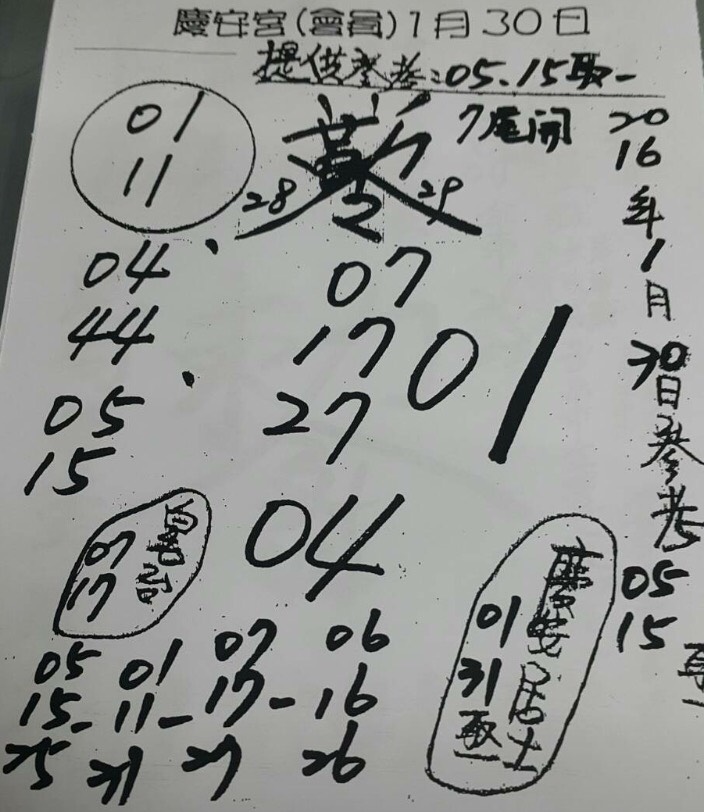 慶安宮(會員)1月30日
提供參考:05.15取一
01
11
7尾開
28
29
2016年1月30日參考05 15
04
44
05
15
07
17
27
01
04
07
17
慶安居士
01
31
取一
05 01 07 06
15-11-17-16
25 21 27 26